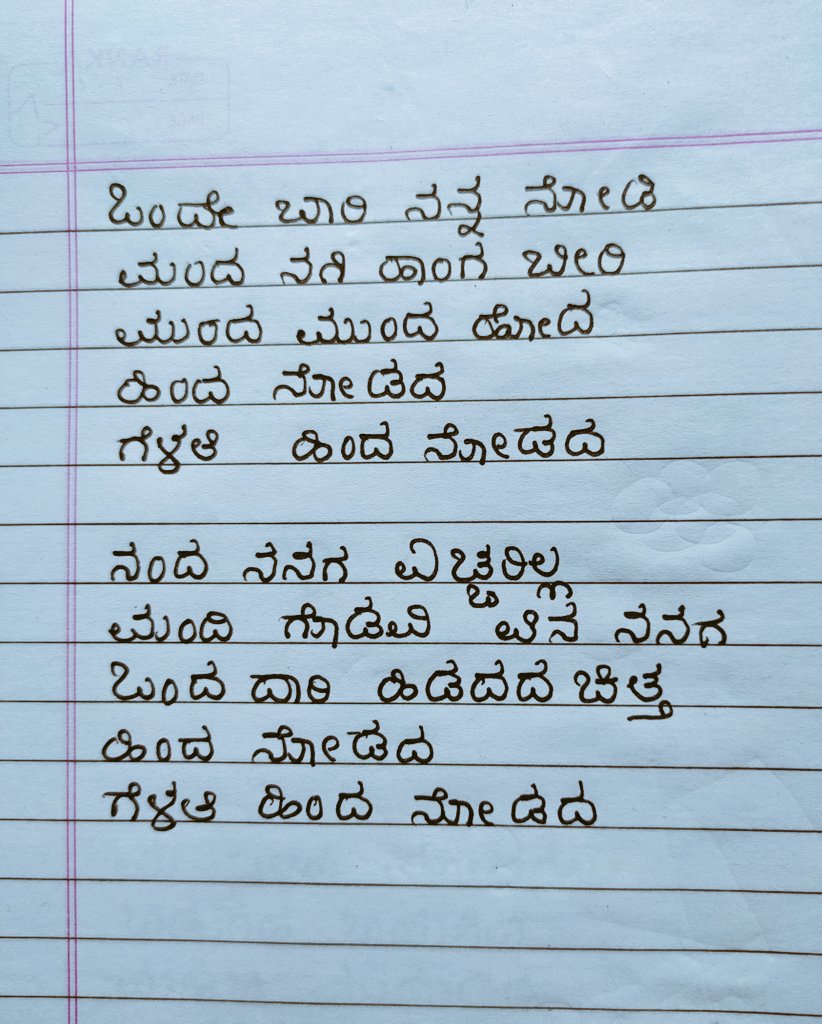 ಒಂದೇ ಬಾರಿ ನನ್ನ ನೋಡಿ
ಮಂದ ನಗಿ ಹಾಂಗ ಬೀರಿ
ಮುಂದ ಮುಂದ ಹೋದ
ಹಿಂದ ನೋಡದ
ಗೆಳತಿ ಹಿಂದ ನೋಡದ
ನಂದ ನನಗ ಎಚ್ಚರಿಲ್ಲ
ಮಂದಿ ಗೊಡವಿ ಏನ ನನಗ
ಒಂದ ದಾರಿ ಹಿಡದದ ಚಿತ್ತ
ಹಿಂದ ನೋಡದ
ಗೆಳತಿ ಹಿಂದ ನೋಡದ